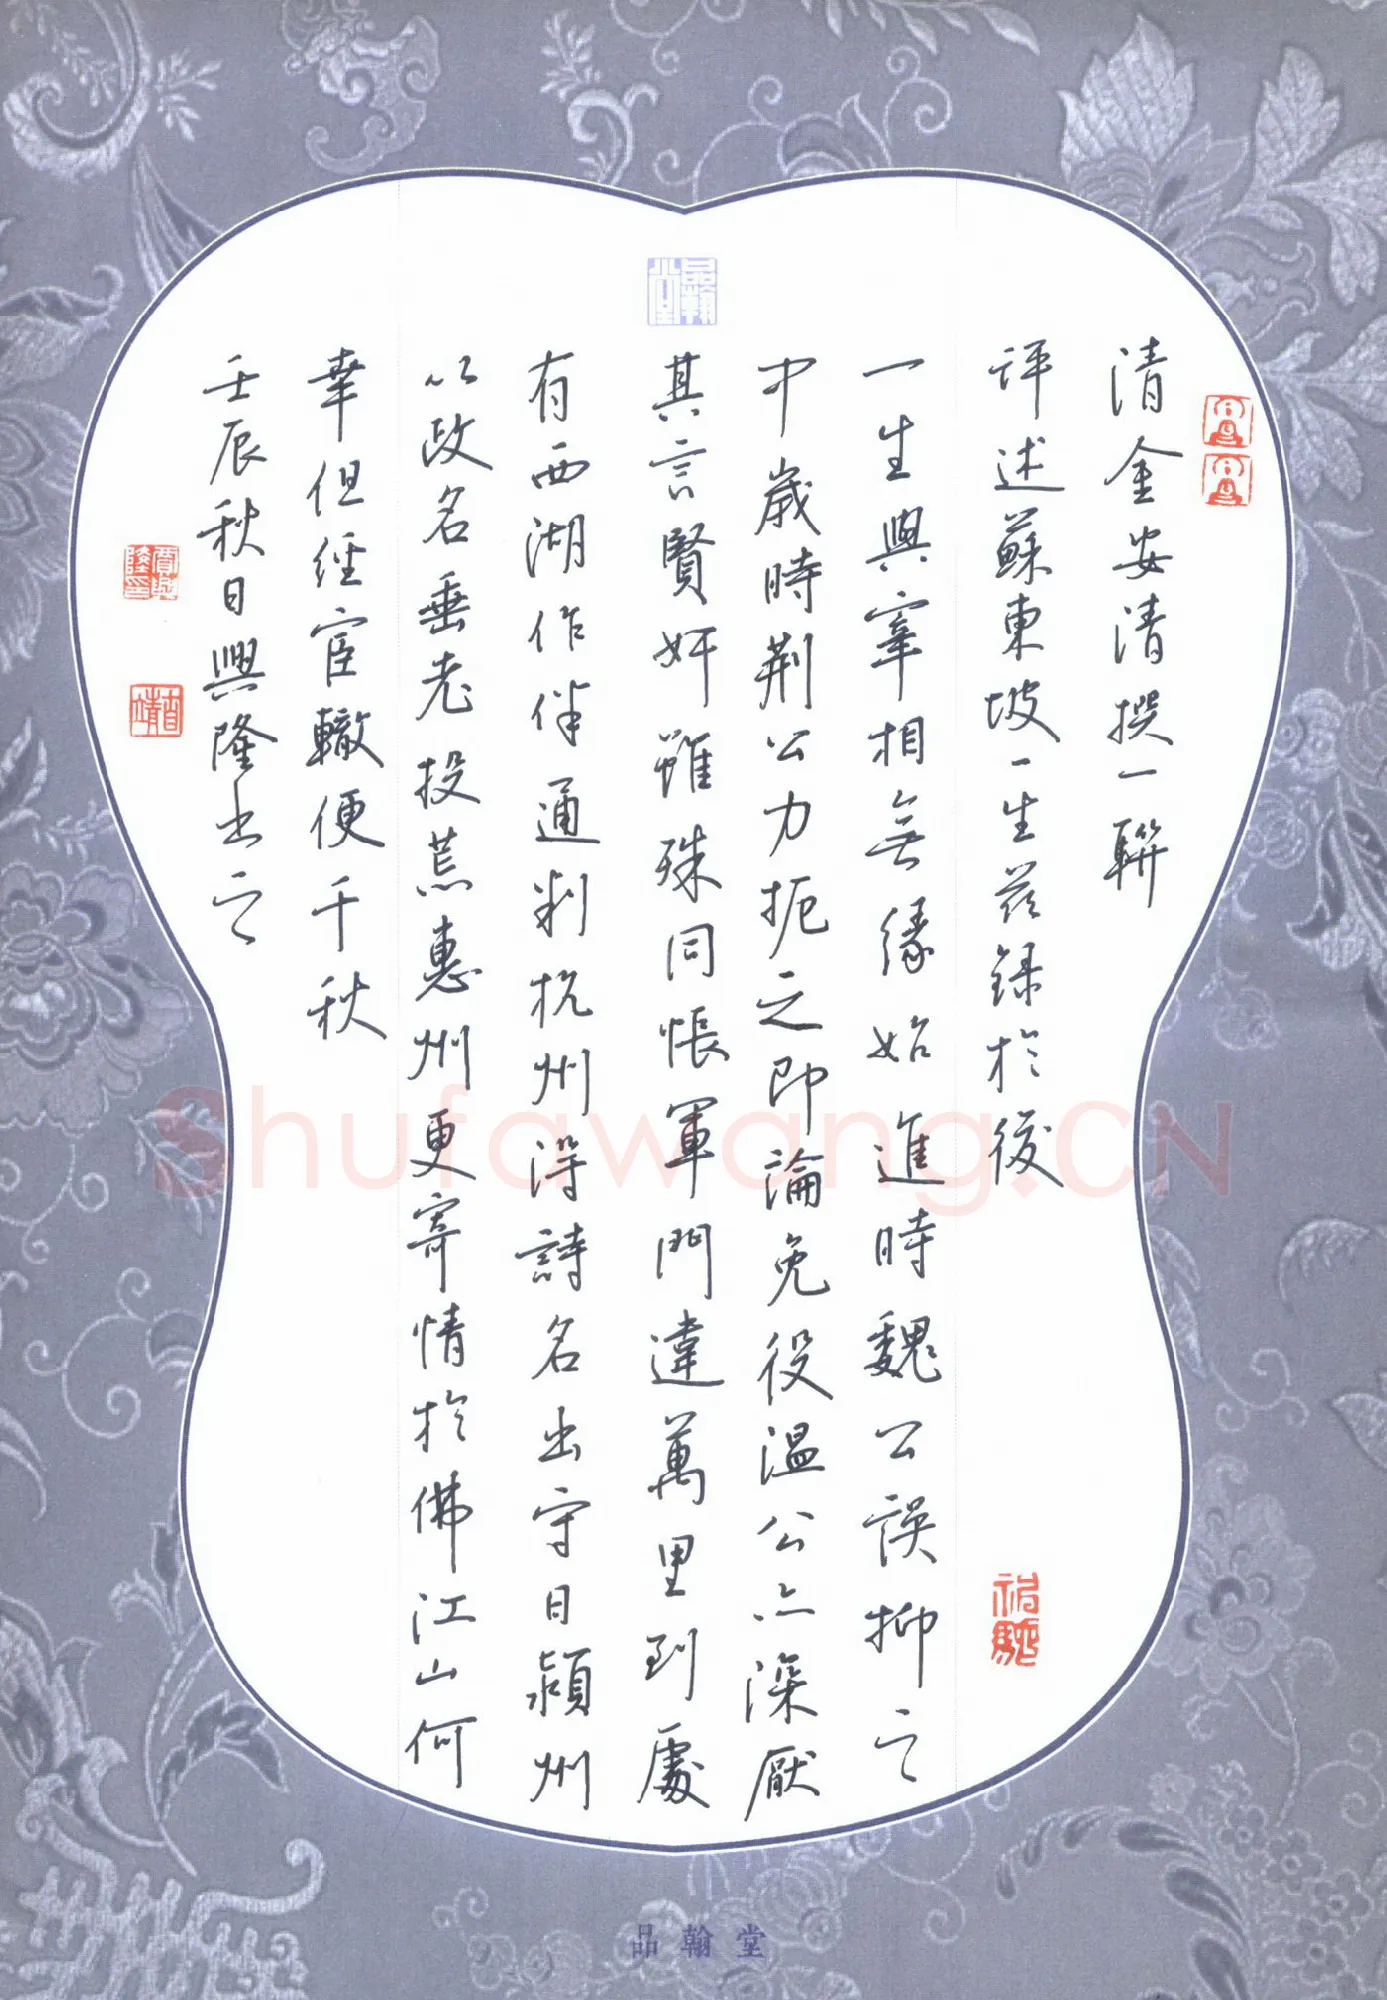 清金安清撰一聯
評述蘇東坡一生茲録於後
一生與宰相無緣始進時魏公誤抑之
中歲時荆公力扼之即論免役温公亦深厭
其言賢奸雖殊同悵軍門違萬里到處
有西湖作伴通判杭州得詩名出守日潁州
以政名垂老投荒惠州更寄情於佛江山何
幸但經宦轍便千秋
壬辰秋日興隆出之
品翰堂
品翰堂
Shufawang.CN